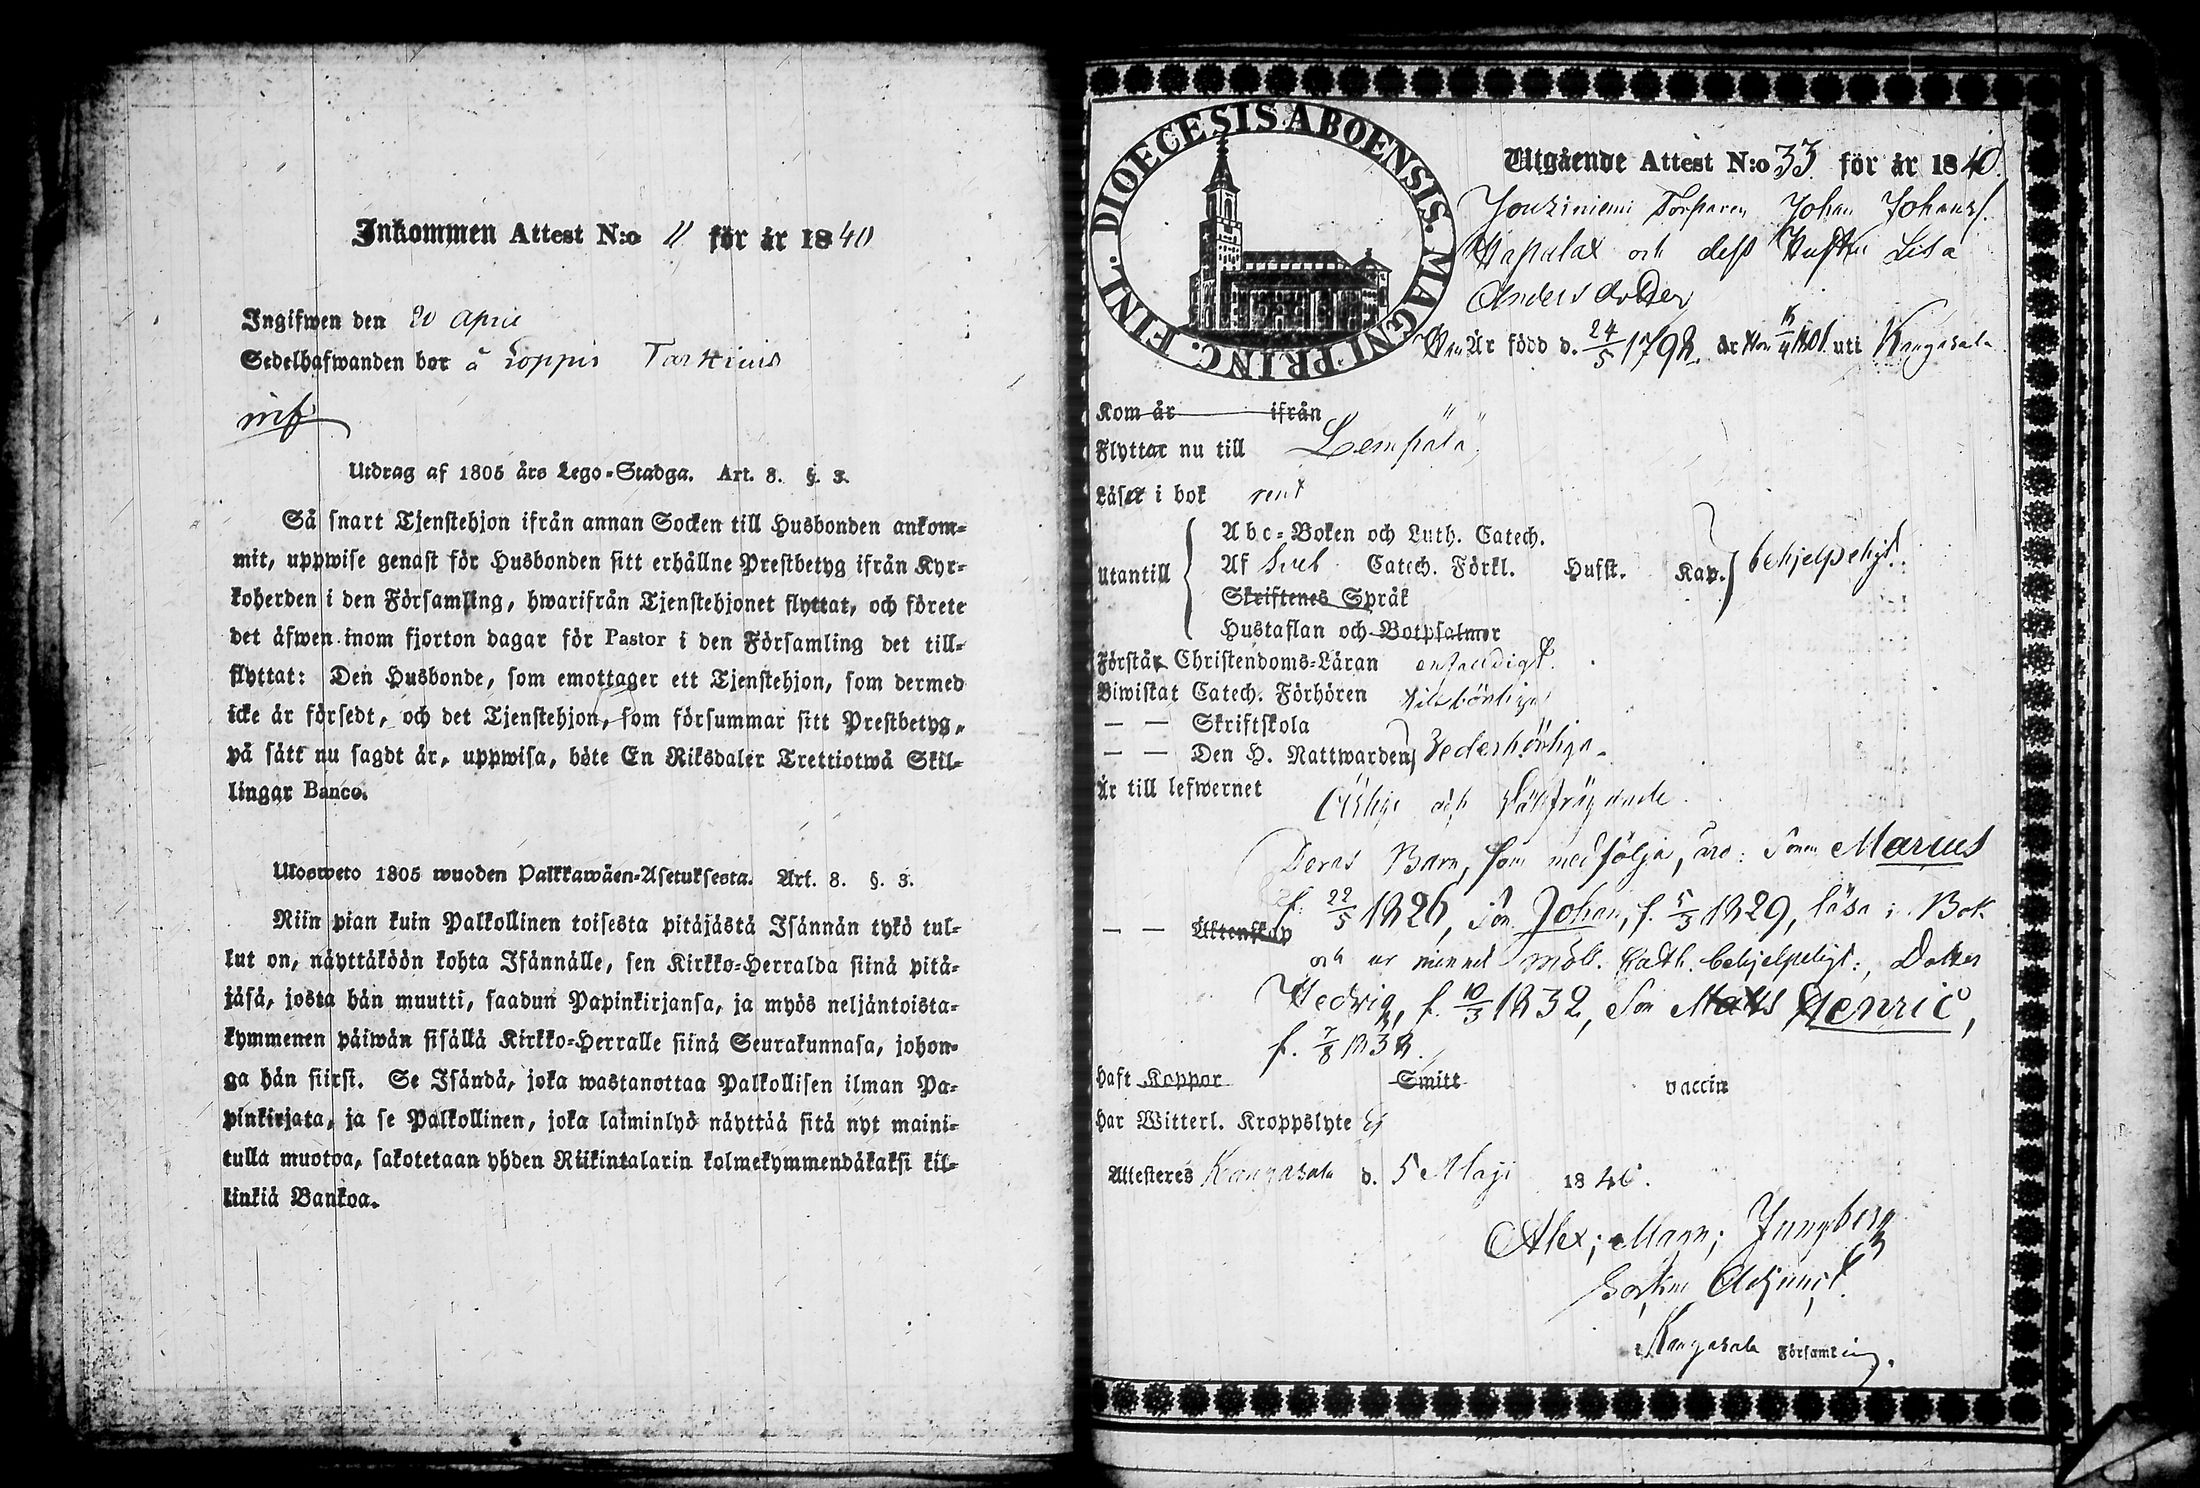 Inkommen Attest N:o 11 för år 1840
Ingifwen den 20 April
Sedelhafwanden bor å Loppis
Utdrag af 1805 års Lego-Stadga. Art. 8. §. 3.
Så snart Tjenstehjon ifrån annan Socken till Husbonden ankom-
mit, uppwise genast för Husbonden sitt erhållne Prestbetyg ifrån Kyr-
koherden i den Församling, hwarifrån Tjenstehjonet flyttat, och förete
det äfwen inom fjorton dagar för Pastor i den Församling det till-
flyttat: Den Husbonde, som emottager ett Tjenstehjon, som dermed
icke är försedt, och det Tjenstehjon, som försummar sitt Prestbetyg,
på sätt nu sagdt är, uppwisa, böte En Riksdaler Trettiotwå Skil-
lingar Banco.
Ulosweto 1805 wuoden Palkkawäen-Asetuksesta. Art. 8. §. 3.
Niin pian kuin Palkollinen toisesta pitäjästä Isännän tykö tul-
lut on, näyttäköön kohta Isännälle, sen Kirkko-Herralda siinä pitä-
jäsä, josta hän muutti, saadun Papinkirjansa, ja myös neljäntoista-
kymmenen päiwän sisällä Kirkko-Herralle siinä Seurakunnasa, johon-
ga hän siirsi. Se Isändä, joka wastanottaa Palkollisen ilman Pa-
pinkirjata, ja se Palkollinen, joka laiminlyö näyttää sitä nyt maini-
tulla muotoa, sakotetaan yhden Riikintalarin kolmekymmendäkaksi kil-
linkiä Bankoa.
DIOECESIS ABOENSIS. MAGNI PRINC. FINL.
Utgående Attest N:o 33 för år 1840.
Jouziniemi Torparen Johan Johansf.
Hapalax och dess Hustru Lisa
Andersdotter
Han Är född d. 24/5 1792. är Hon 15/4 1801 uti Kangasala
Kom år ifrån
Flyttar nu till Lempälä,
Läser i bok rent
Utantill
Abc-Boken och Luth. Catech.
Af Sveb. Catech. Förkl. Husst. Kap. behjelpeligt.
Skriftenes Språk
Hustaflan och Botpsalmer
Förstår Christendoms-Läran enfaldigt.
Biwistat Catech. Förhören
— — Skriftskola
— — Den H. Nattwarden vederbörliga
Är till lefwernet ärlige och wälfrägdade.
Deras Barn, som medfölja, äro: Sonen Marcus
f. 22/5 1826, Son Johan, f. 5/3 1829, läsa i Bok
— — Äktenskap
och ur minnet Moll. Cath. behjelpeligt:, Dotter
Hedvig, f. 10/3 1832, Son Mats Henric,
f. 7/8 1838.
Haft Koppor Smitt vaccin
Har Witterl. Kroppslyte Ej
Attesteres Kangasala d. 5 Maji 1840.
Alex; Mann; Jungberg
Adjunct.
i Kangasala Församling.